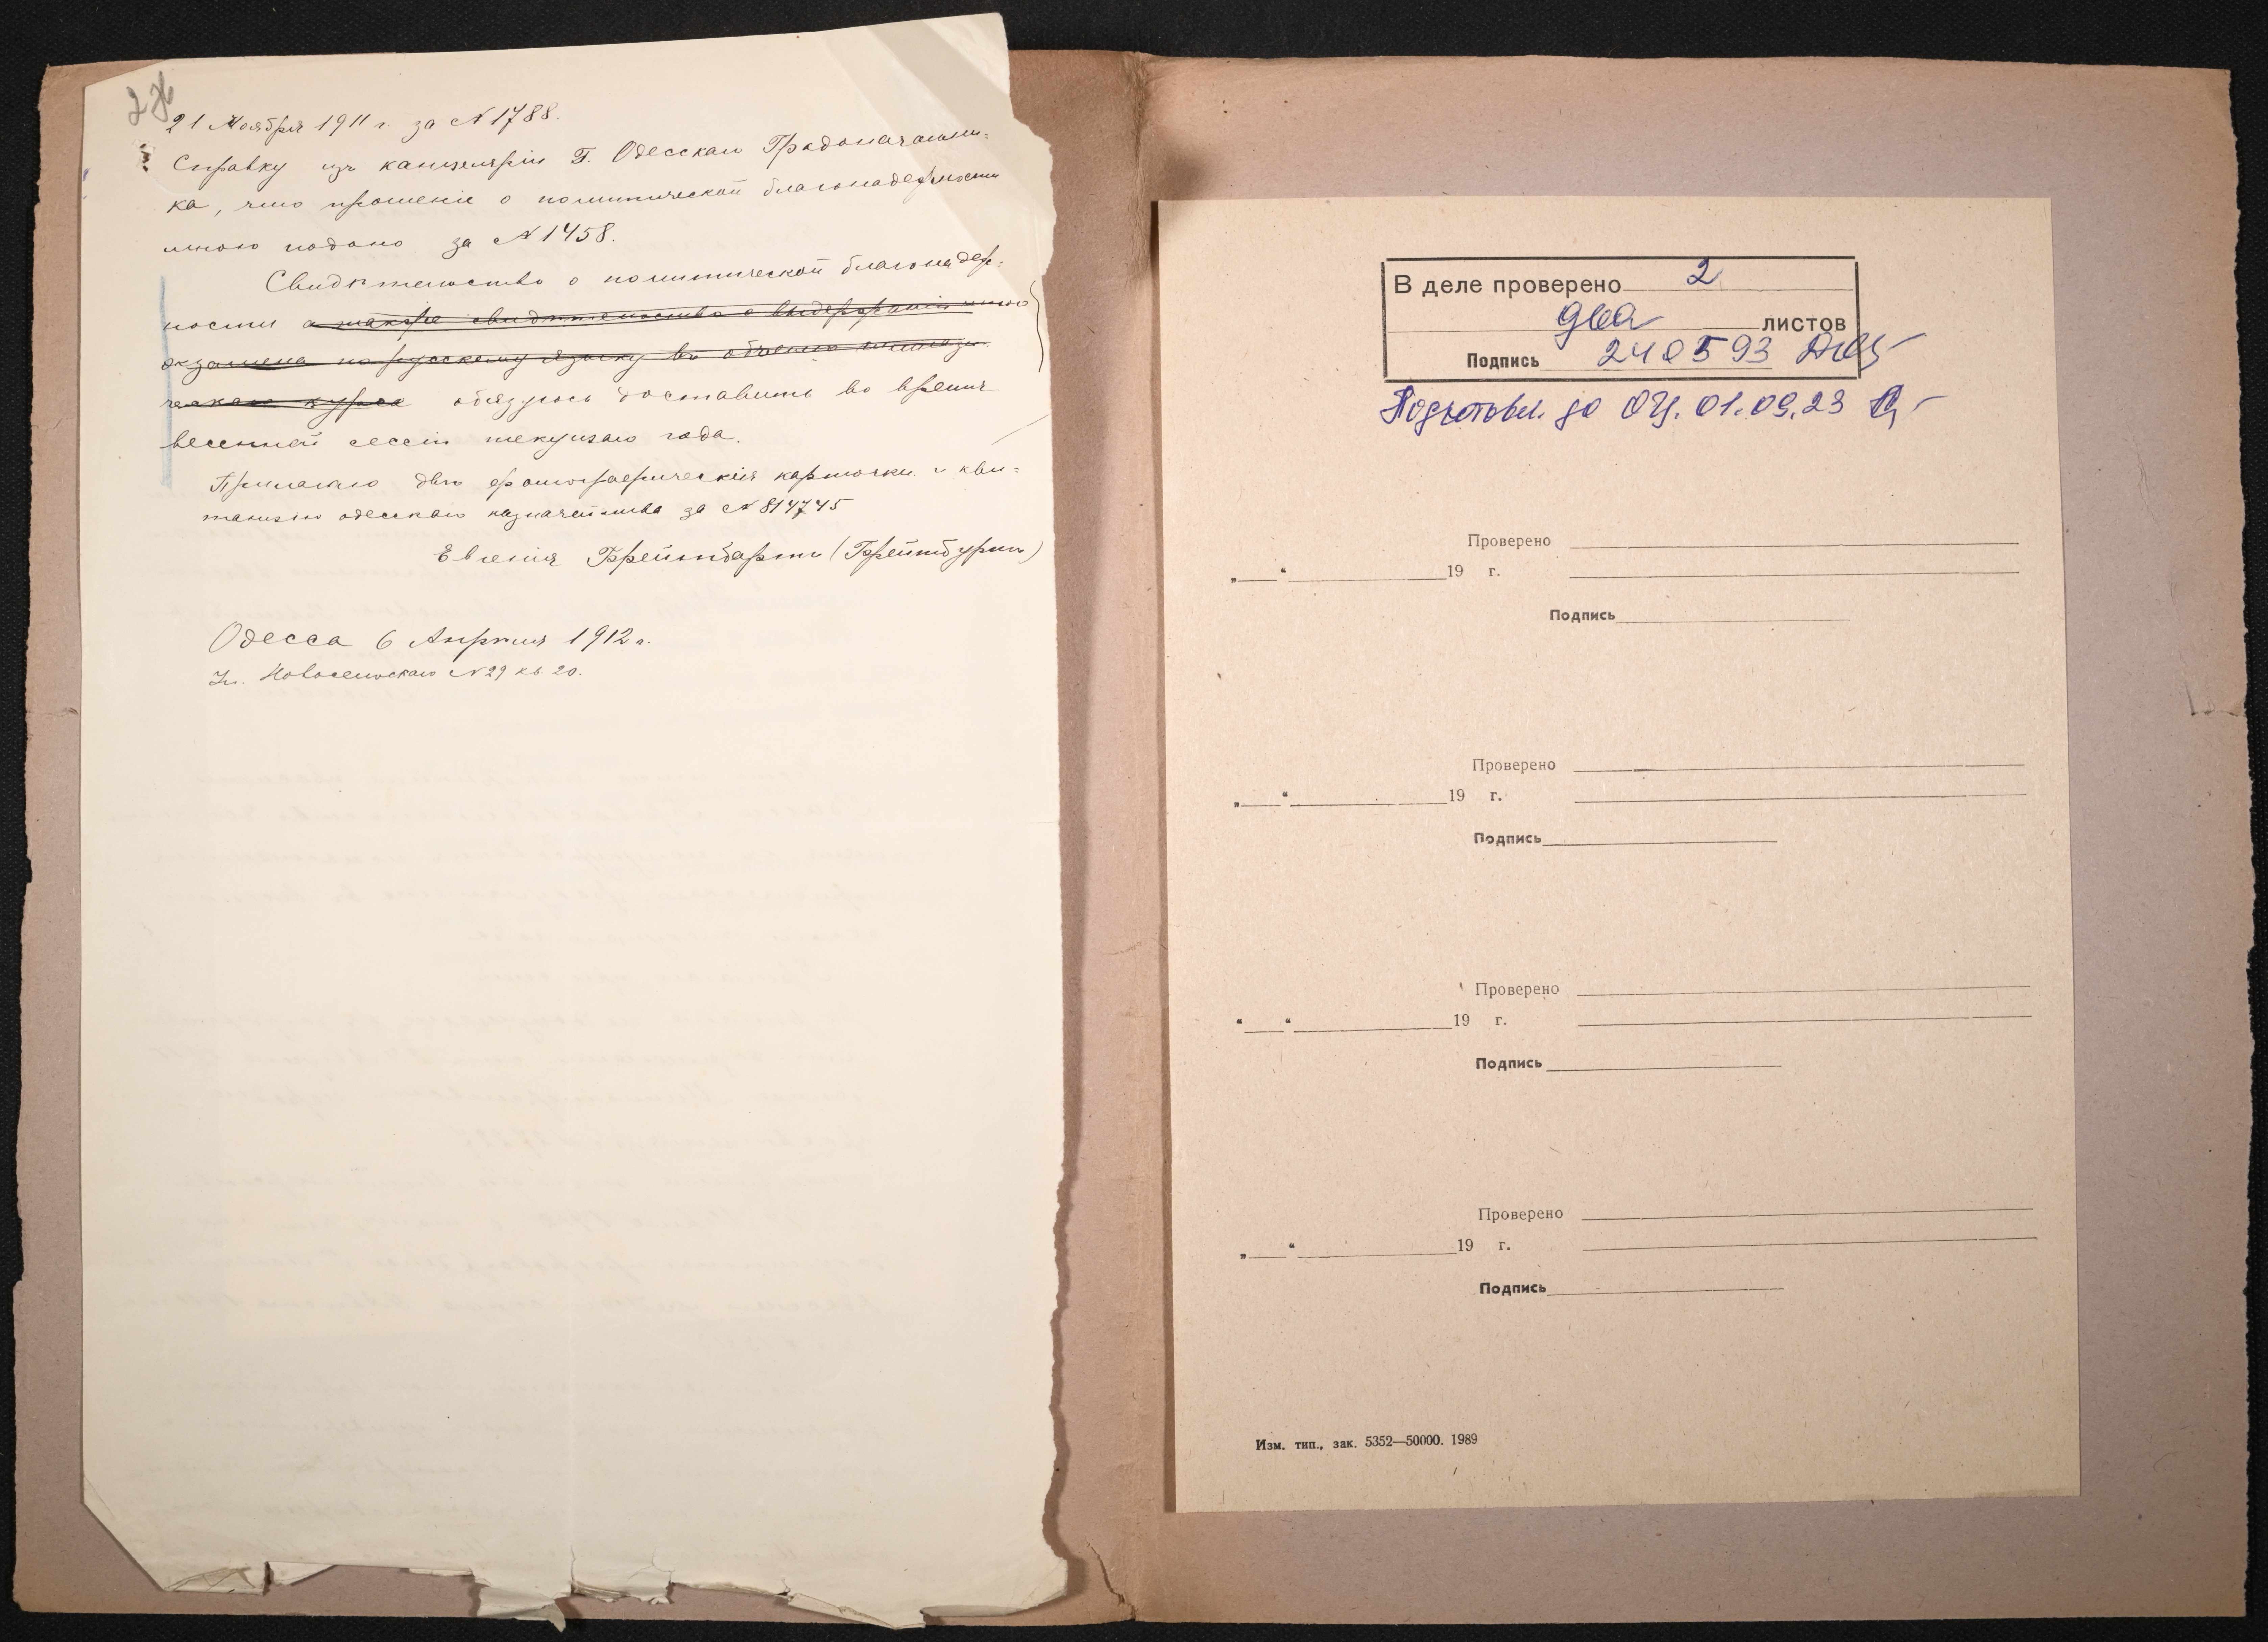 21 Ноября 1911 г. за №1788.
Справку изъ канцеляріи Г. Одесскаго Градоначальни=
ка, что прошеніе о политической благонадежности
мною подано за №1458.
Свидѣтельство о политической благонадеж=
ности а также свидѣтельство о выдержаніи мною
экзамена по русскому языку въ объемѣ гимнази
ческаго курса обязуюсь доставить во время
весенней сессіи текущаго года.
Прилагаю двѣ фотографическія карточки и кви=
танцію одесскаго казначейства за №814745
Евгенія Брейтбартъ (Брейтбуртъ)
Одесса 6 Апрѣля 1912 г.
Ул. Новосельскаго №29 кв. 20.
В деле проверено 2
два листов
Подпись 240593
до ОЦ. 01.09.23
Проверено
„ “ 19 г.
Подпись
Проверено
„ “ 19 г.
Подпись
Проверено
“ “ 19 г.
Подпись
Проверено
„ “ 19 г.
Подпись
Изм. тип., зак. 5352—50000. 1989